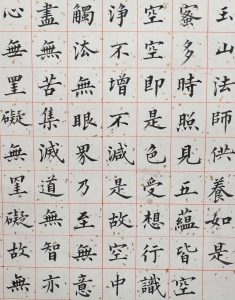 玉山法師供養如是
蜜多時照見五蘊皆空
空空即是色受想行識
淨不增不減是故空中
觸法無眼界乃至無意
盡無苦集滅道無智亦
心無罣礙無罣礙故無